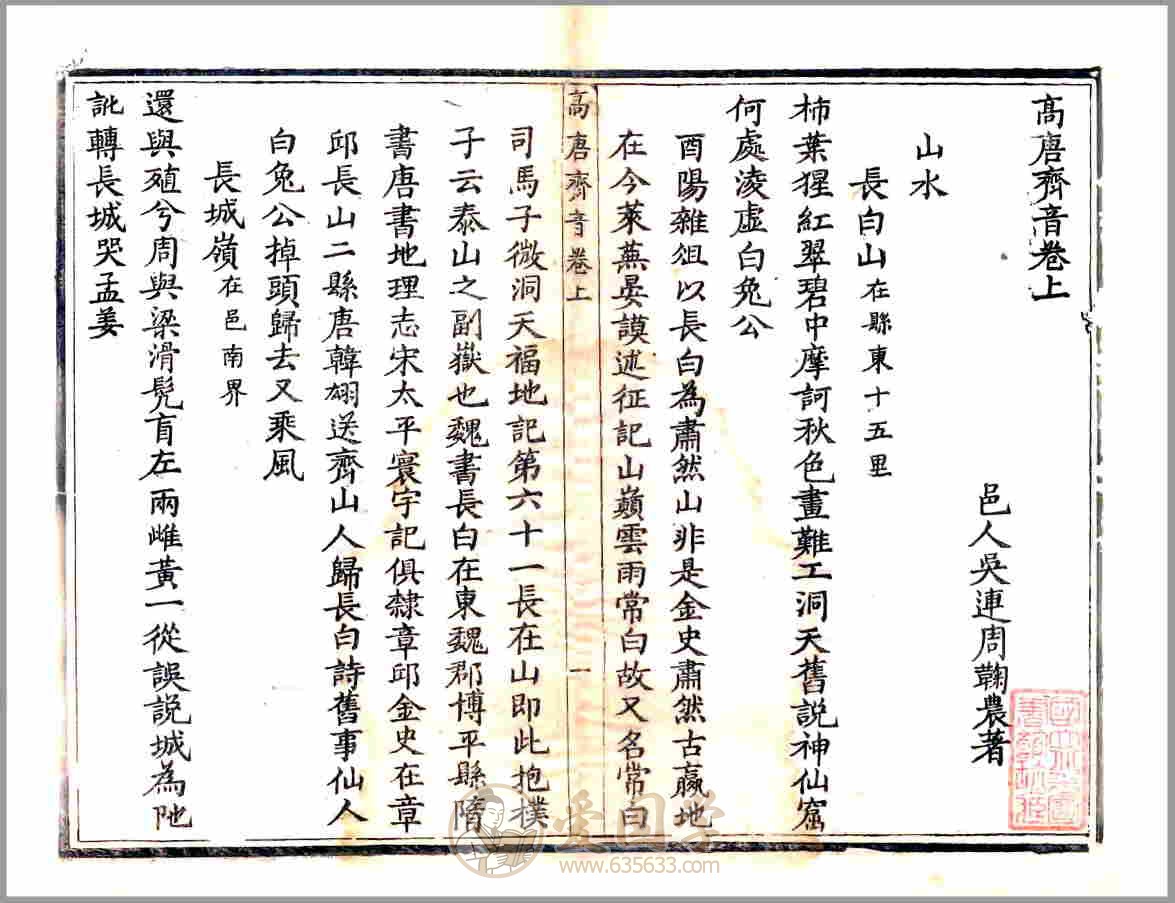 高唐齊音卷上
邑人吳連周鞠農著
山水
長白山在縣東十五里
柿葉猩紅翠碧中摩訶秋色畫難工洞天舊説神仙窟
何處淩虛白兔公
酉陽雜俎以長白為肅然山非是金史肅然古嬴地
在今萊蕪晏謨述征記山巔雲雨常白故又名常白
高唐齊音卷上 一
司馬子微洞天福地記第六十一長在山即此抱樸
子云泰山之副嶽也魏書長白在東魏郡博平縣隋
書唐書地理志宋太平寰宇記俱隸章邱金史在章
邱長山二縣唐韓翃送齊山人歸長白詩舊事仙人
白兔公掉頭歸去又乘風
長城嶺在邑南界
還與殖兮周與梁滑髡盲左兩雌黃一從誤説城為阤
訛轉長城哭孟姜
爱回学
www.635633.com